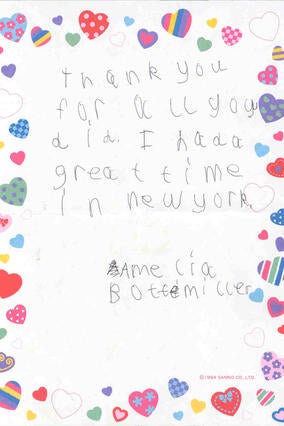 thank you
for all you
did. I had a
great time
In new york.
Amelia
Bottemiller
©1994 SANRIO CO., LTD.